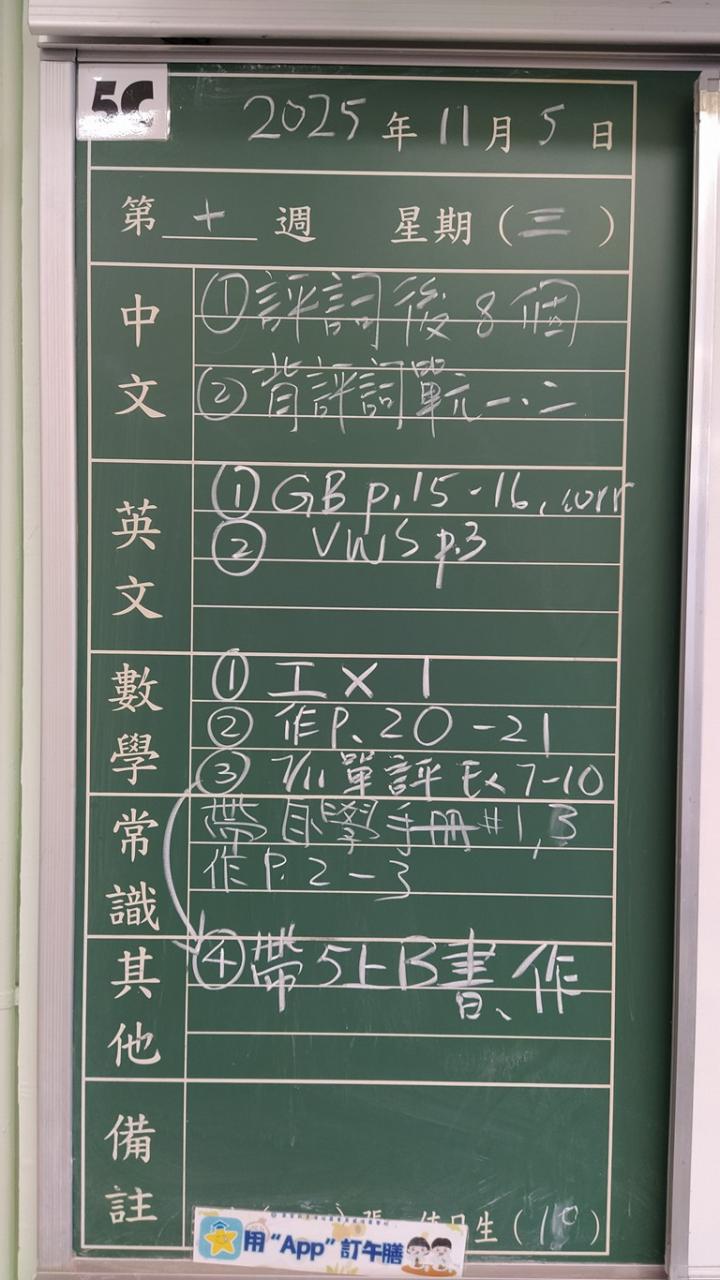 5C
2025 年 11 月 5 日
第 十 週 星期（三）
中文
①評詞後8個
②背評詞單元一、二
英文
① GB p.15-16, corr
② VWS p.3
數學
① 工 × 1
② 作P. 20-21
③ 7/11 單評 Ex 7-10
常識
帶自學手冊 #1,3
作 P. 2-3
其他
④帶5上B書、作
備註
張 值日生（10）
用“App”訂午膳